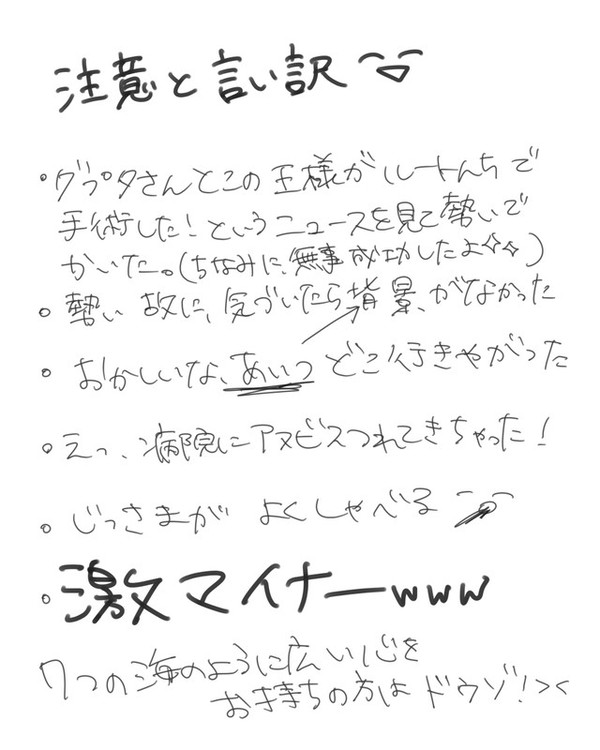 注意と言い訳
・グプタさんとこの王様がルートんちで
手術した!というニュースを見て勢いで
かいた。(ちなみに、無事成功したよ☆☆)
・勢い故に、気づいたら背景がなかった
・おかしいな、あいつどこ行きやがった
・えっ、病院にアヌビスつれてきちゃった!
・じっさまがよくしゃべる
・激マイナーwww
7つの海のように広い心を
お持ちの方はドウゾ!><